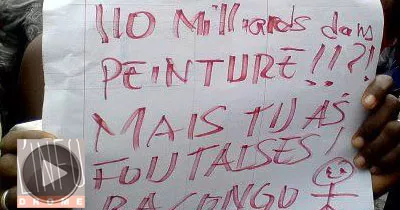 110 Milliards dans
PEINTURE !!?!
MAIS TU AS
FOUTAISES !
BACONGO
L'INFO
DROME